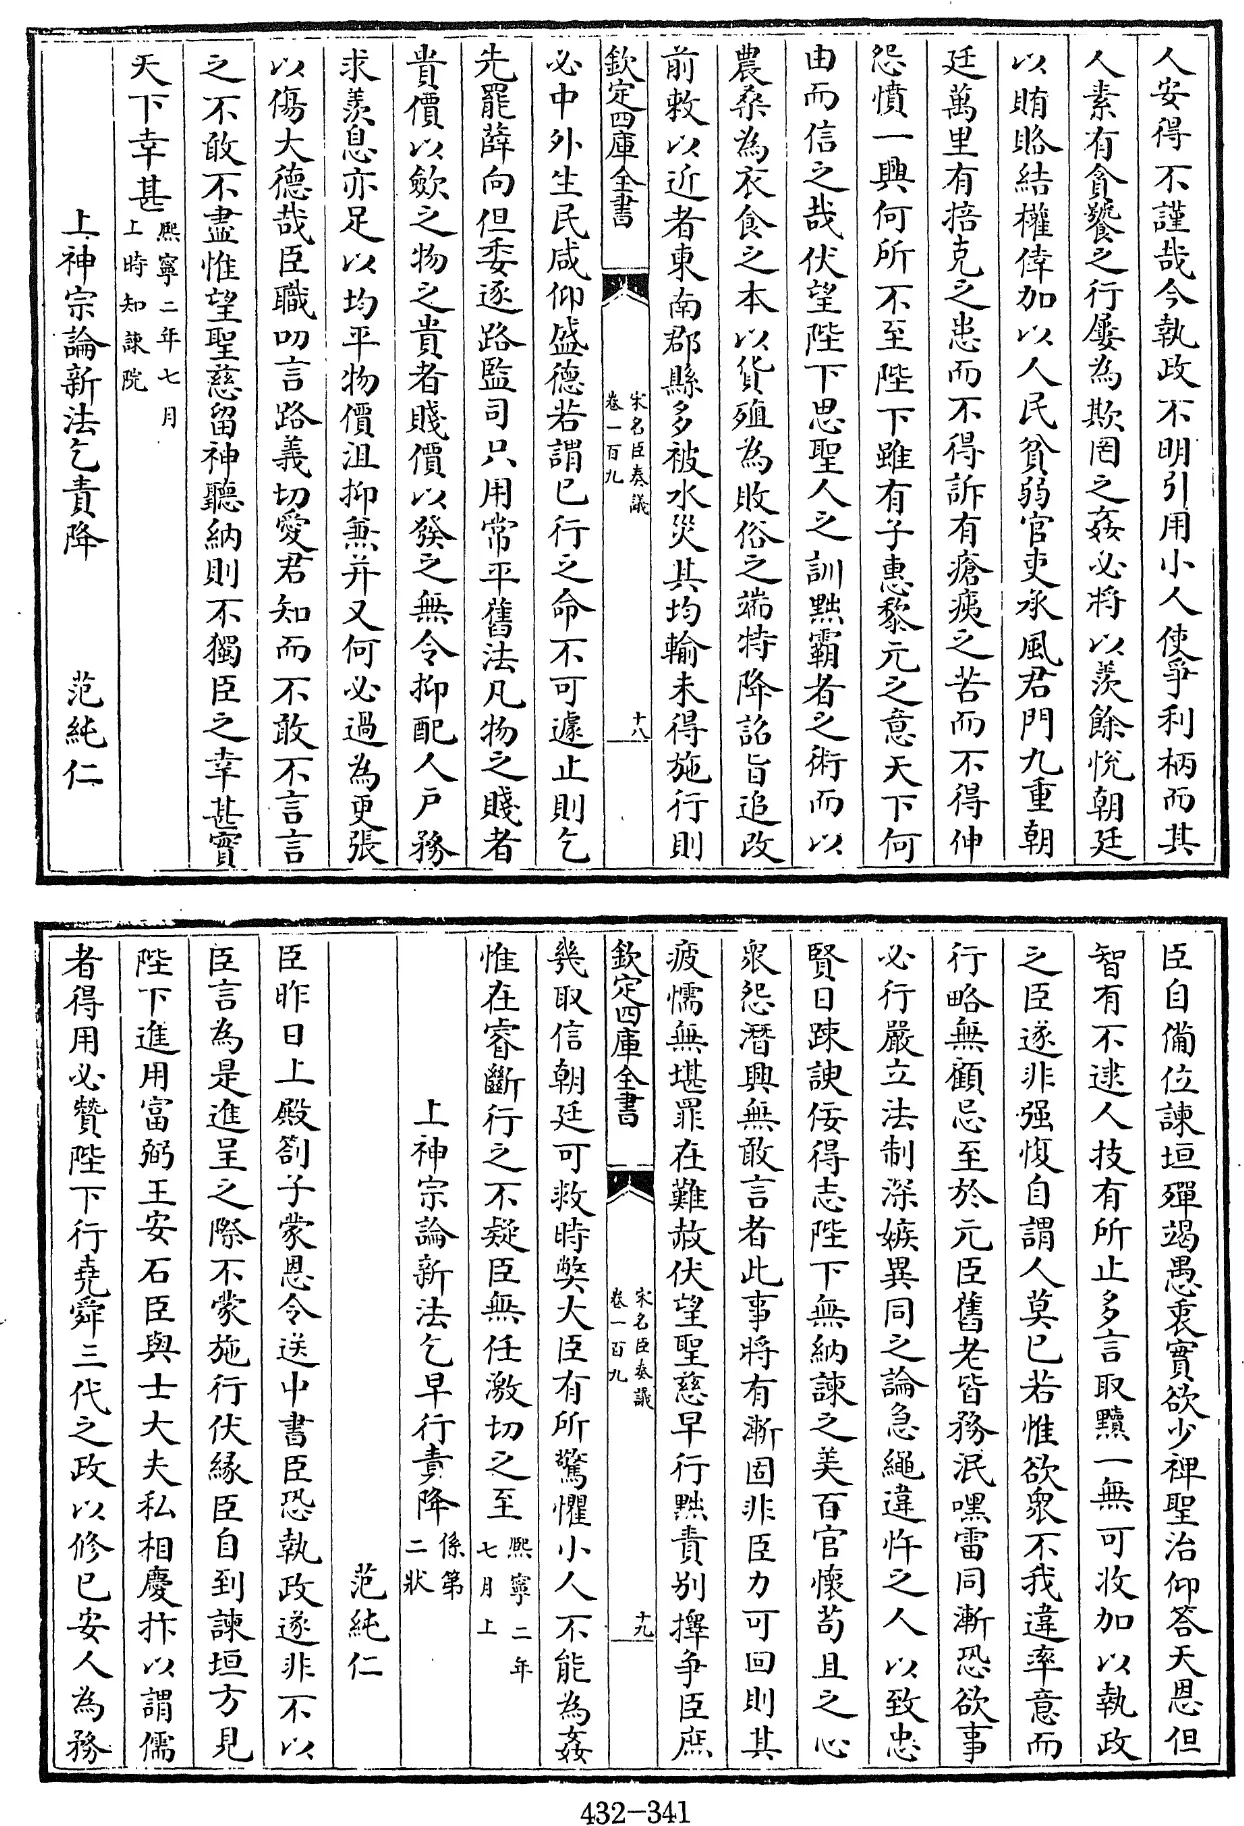 人安得不謹哉今執政不明引用小人使爭利柄而其
人素有貪饕之行屢為欺罔之姦必將以羨餘悅朝廷
以賄賂結權倖加以人民貧弱官吏承風君門九重朝
廷萬里有掊克之患而不得訴有瘡痍之苦而不得伸
怨憤一興何所不至陛下雖有子惠黎元之意天下何
由而信之哉伏望陛下思聖人之訓黜霸者之術而以
農桑為衣食之本以貨殖為敗俗之端特降詔旨追改
前敕以近者東南郡縣多被水災其均輸未得施行則
欽定四庫全書
宋名臣奏議
卷一百九
十八
必中外生民咸仰盛德若謂已行之命不可遽止則乞
先罷薛向但委逐路監司只用常平舊法凡物之賤者
貴價以斂之物之貴者賤價以發之無令抑配人戶務
求羨息亦足以均平物價沮抑兼并又何必過為更張
以傷大德哉臣職叨言路義切愛君知而不敢不言言
之不敢不盡惟望聖慈留神聽納則不獨臣之幸甚實
天下幸甚熙寧二年七月
上時知諫院
上神宗論新法乞責降 范純仁
臣自備位諫垣殫竭愚衷實欲少裨聖治仰答天恩但
智有不逮人技有所止多言取黷一無可收加以執政
之臣遂非强愎自謂人莫已若惟欲衆不我違率意而
行略無顧忌至於元臣舊老皆務泯嘿雷同漸恐欲事
必行嚴立法制深嫉異同之論急繩違忤之人以致忠
賢日踈諛佞得志陛下無納諫之美百官懷苟且之心
衆怨潛興無敢言者此事將有漸固非臣力可回則其
疲懦無堪罪在難赦伏望聖慈早行黜責别擇爭臣庶
欽定四庫全書
宋名臣奏議
卷一百九
十九
幾取信朝廷可救時弊大臣有所驚懼小人不能為姦
惟在睿斷行之不疑臣無任激切之至熙寧二年
七月上
上神宗論新法乞早行責降係第
二狀
范純仁
臣昨日上殿劄子蒙恩令送中書臣恐執政遂非不以
臣言為是進呈之際不蒙施行伏緣臣自到諫垣方見
陛下進用富弼王安石臣與士大夫私相慶抃以謂儒
者得用必贊陛下行堯舜三代之政以修已安人為務
432-341